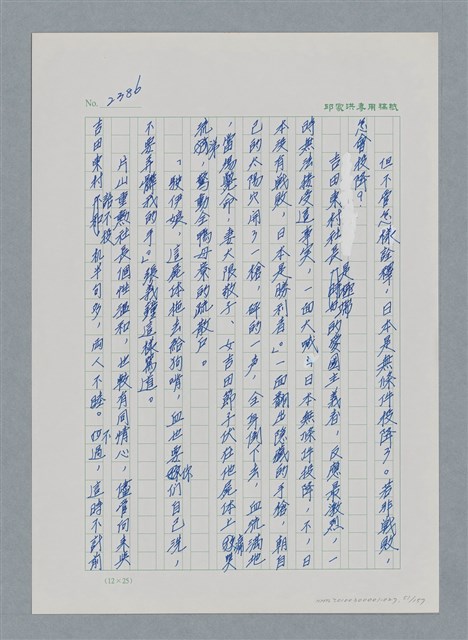 No. 2386
邱家洪專用稿紙
但不管怎樣詮釋，日本是無條件投降了。若非戰敗，
怎會投降？
吉田東村社長是極端時好的愛國主義者，反應最激烈，一
時無法接受這事實，一面大喊：日本無條件投降，不，日
本沒有戰敗，日本是勝利者。」一面翻出隱藏的手槍，朝自
己的太陽穴開了一槍，砰的一声，全身倒下去，血流滿地
，當場斃命！妻大限敏子、女吉田節子伏在他屍体上痛哭
流涕，驚動全鴨母寮的疏散戶。
「駛伊娘，這屍体拖去給狗啃，血也要你們自己洗，
不要弄髒我的手。」張義鐘這樣罵道。
片山重勲社長個性溫和，也較有同情心，儘管向來與
吉田東村話不投机半句多，兩人不睦。不過，這時不計前
(12×25)